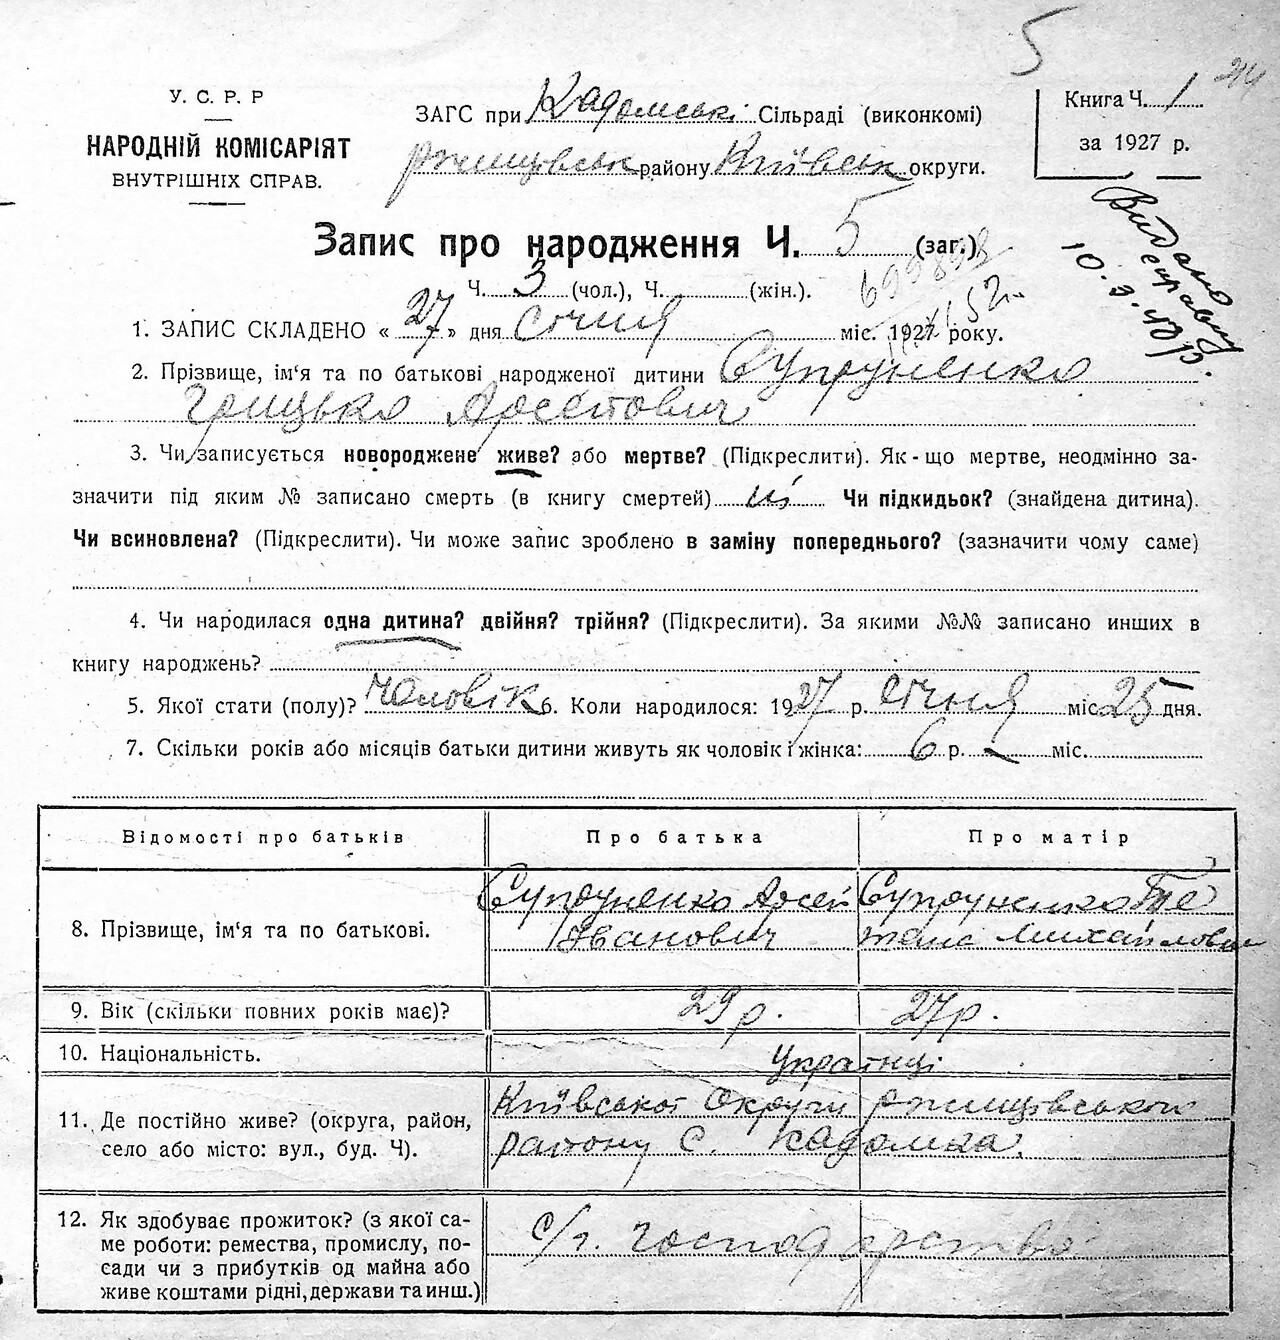 5
214
У. С. Р. Р
НАРОДНІЙ КОМІСАРІЯТ
ВНУТРІШНІХ СПРАВ.
ЗАГС при Кадомські Сільраді (виконкомі)
ржищівськ району Київськ округи.
Книга Ч. 1
за 1927 р.
Видано
справку
10.3.50р.
Запис про народження Ч. 5 (заг.)
Ч. 3 (чол.), Ч. (жін.).
699898
1. ЗАПИС СКЛАДЕНО « 27 » дня січня міс. 1927 року.
2. Прізвище, ім'я та по батькові народженої дитини Супруненко
Грицько Арсентович
3. Чи записується новороджене живе? або мертве? (Підкреслити). Як-що мертве, неодмінно за-
значити під яким № записано смерть (в книгу смертей) ні Чи підкидьок? (знайдена дитина).
Чи всиновлена? (Підкреслити). Чи може запис зроблено в заміну попереднього? (зазначити чому саме)
4. Чи народилася одна дитина? двійня? трійня? (Підкреслити). За якими №№ записано инших в
книгу народжень?
5. Якої стати (полу)? Чоловік 6. Коли народилося: 1927 р. січня міс 25 дня.
7. Скільки років або місяців батьки дитини живуть як чоловік і жінка: 6 р. - міс.
Відомості про батьків Про батька Про матір
8. Прізвище, ім'я та по батькові. Супруненко Арсен Іванович Супруненко Те тяна Михайловна
9. Вік (скільки повних років має)? 29 р. 27 р.
10. Національність. Українці
11. Де постійно живе? (округа, район, Київської Округи ржищівськой
село або місто: вул., буд. Ч). району С. Кадомка.
12. Як здобуває прожиток? (з якої са-
ме роботи: ремества, промислу, по- с/г. господарство
сади чи з прибутків од майна або
живе коштами рідні, держави та инш.)